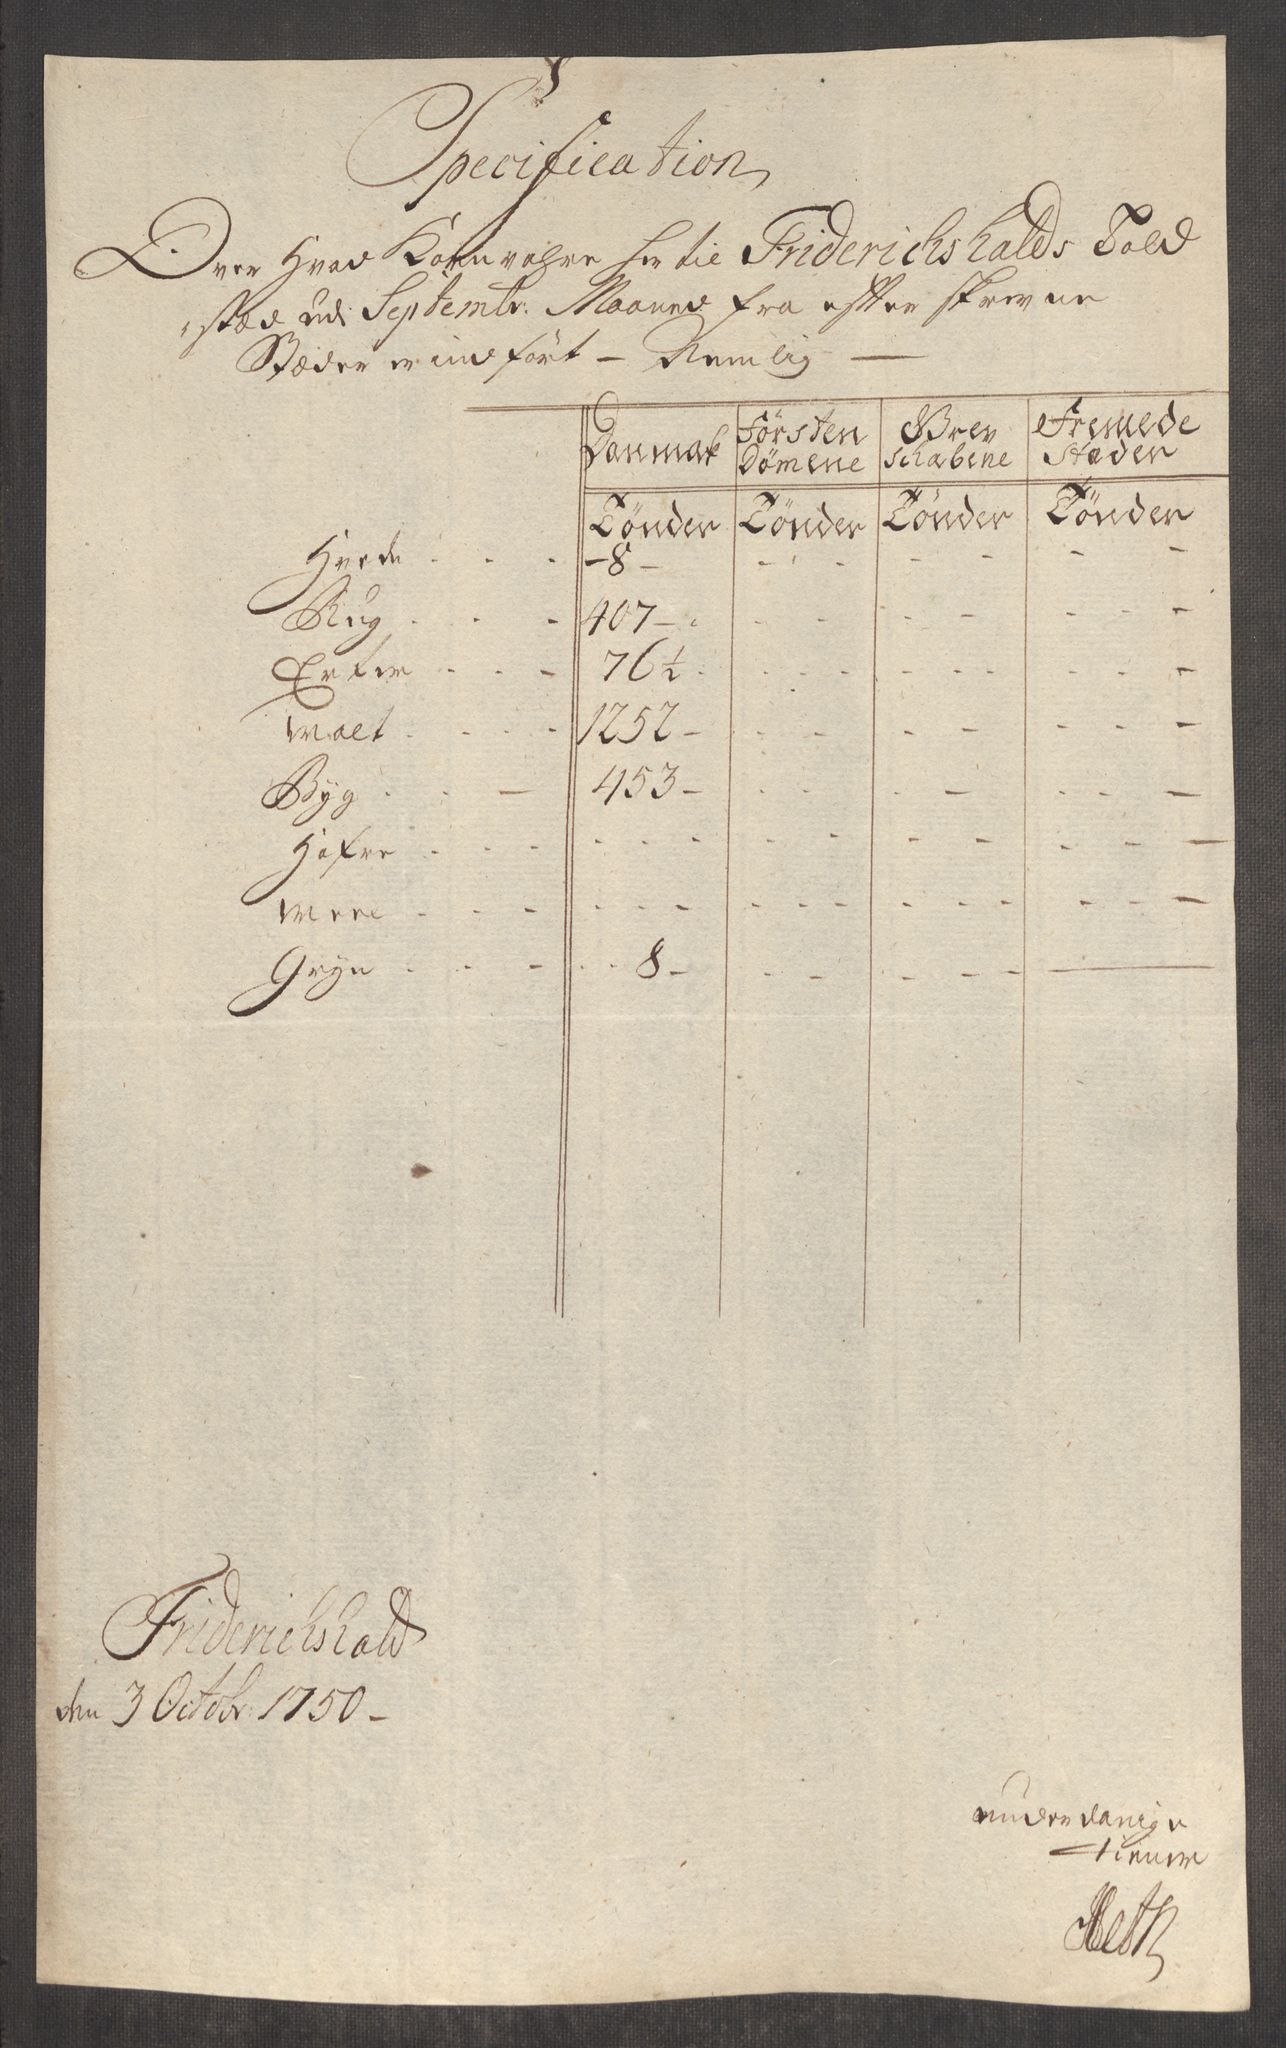 Specification
Over Hvad Kornvahre her til Friderichshalds Told
stæd udi Septembr: Maaned fra efter skrevne
Stæder er indført - Nemlig -
Danmak Førsten Dømene Brev schabene Fremede Stæder
Tönder Tönder Tönder Tönder
Hvede - 8 -
Rug 407 -
Erter 76 1/2
Malt 1252 -
Byg 453 -
Hafre
Meel
Gryn 8 -
Friderichshald
den 3 Octobr: 1750 -
underdanige
tiener